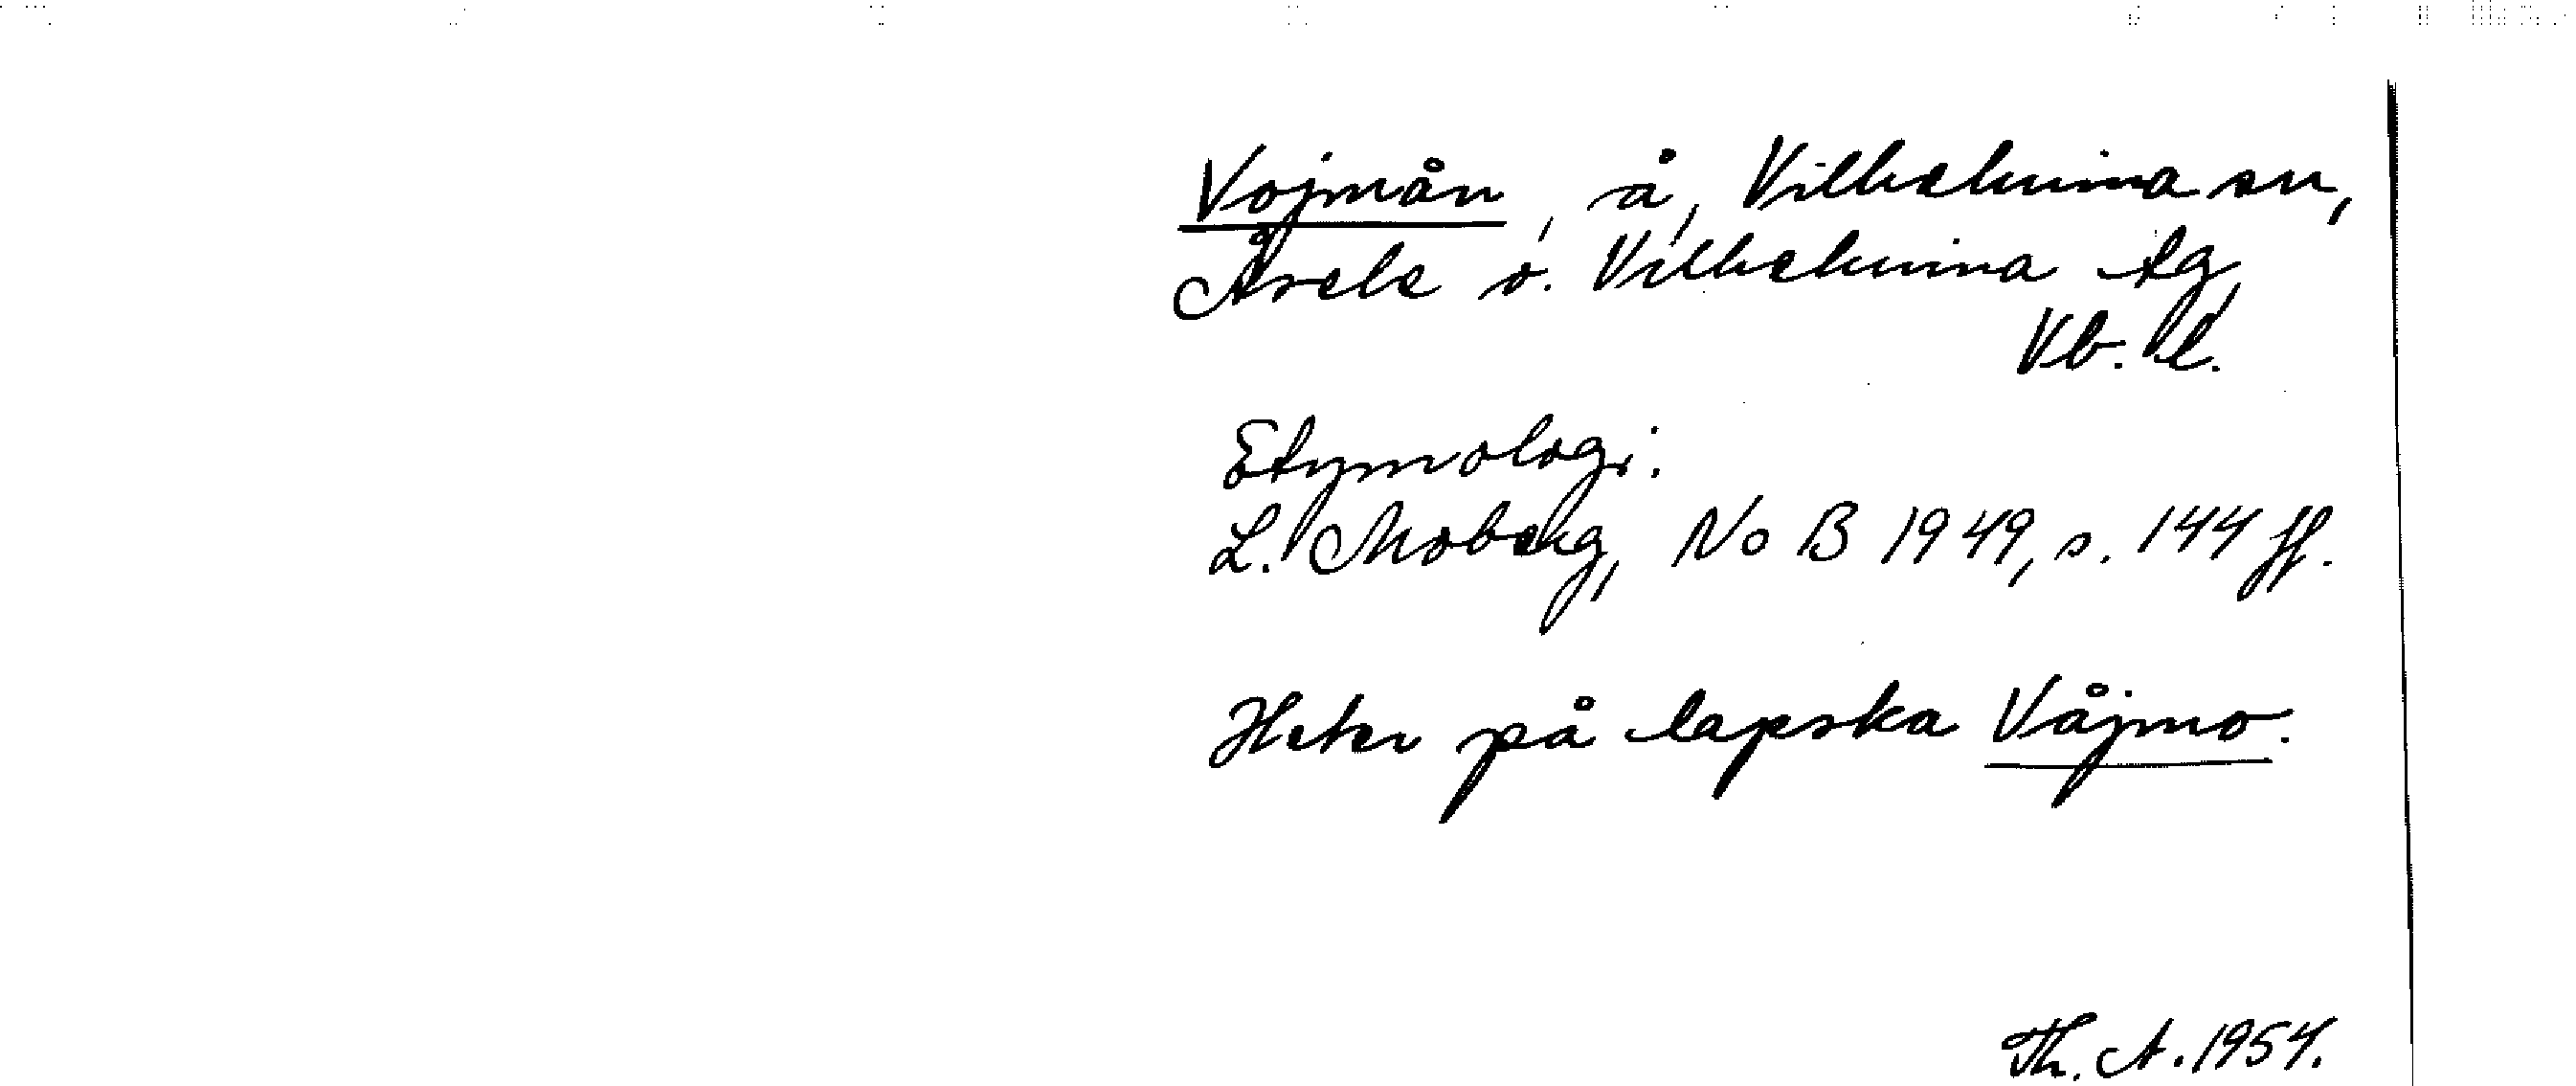 Vojmån, å, Vilhelmina sn,
Åsele o. Vilhelmina tg,
Vb. l.
Etymologi:
L. Moberg, NoB 1949, s. 144 ff.
Heter på lapska Våjmo.
Th. A. 1954.